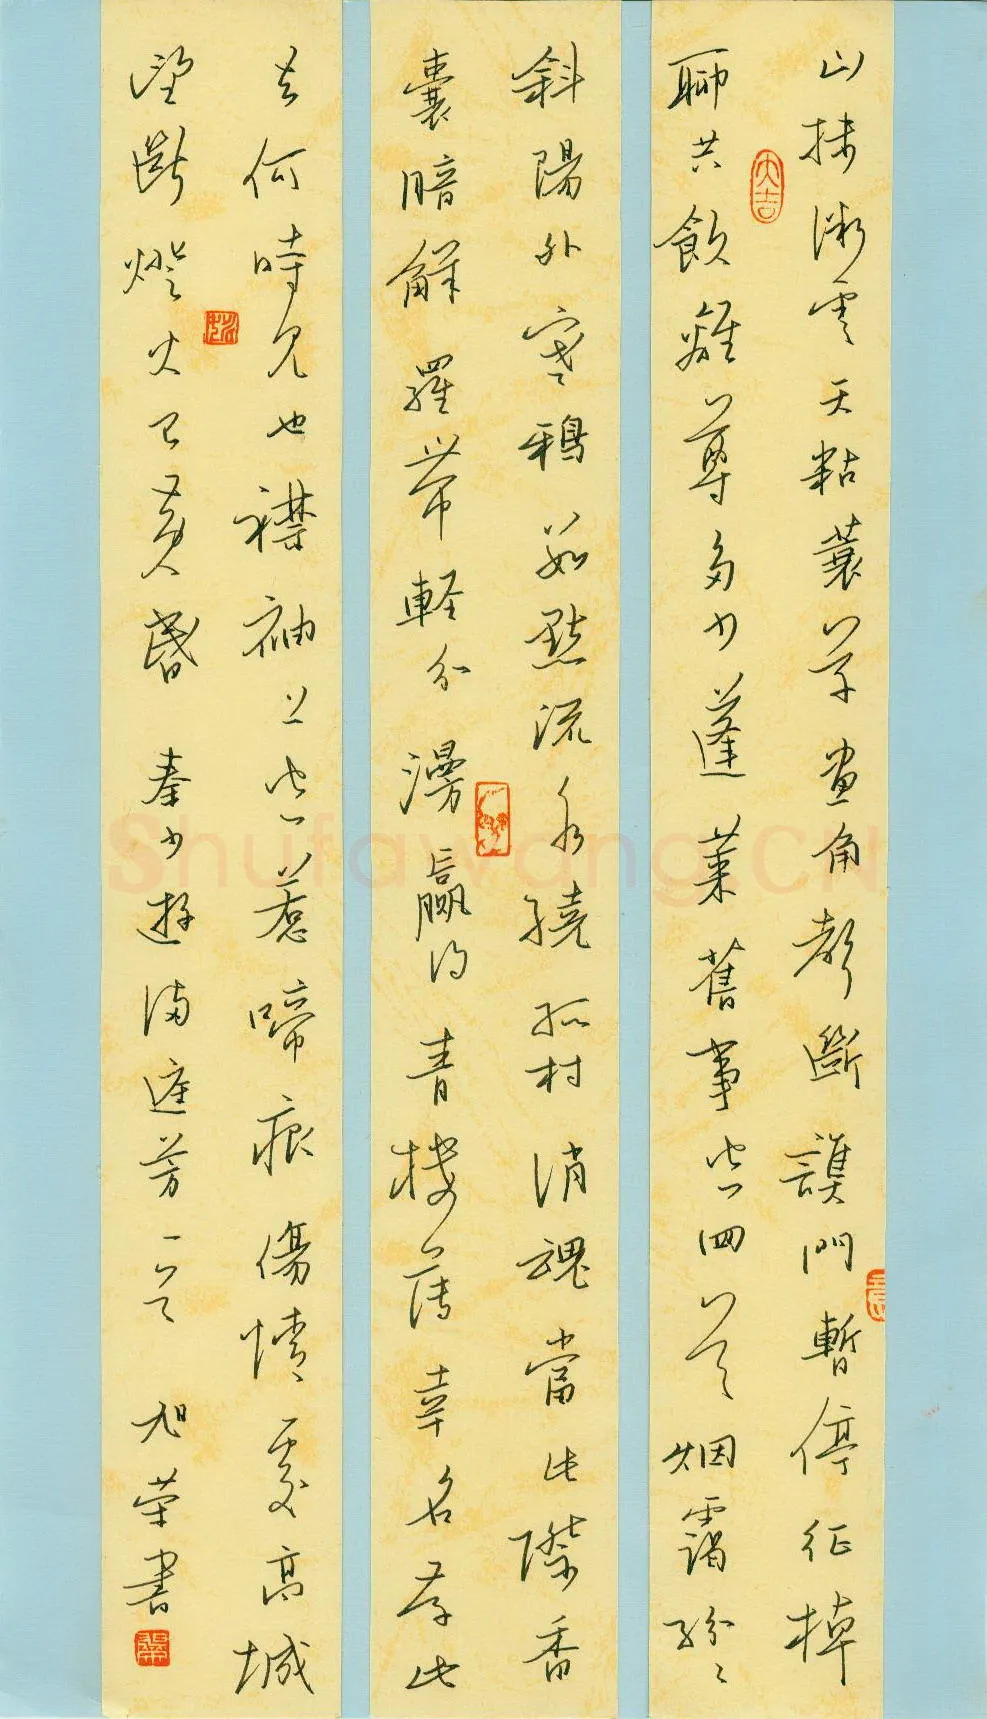 山抹微雲天粘蓑草畫角聲斷譙門暫停征棹
聊共飲離尊多少蓬萊舊事空回首烟靄紛〻
斜陽外寒鴉數點流水繞孤村消魂當此際香
囊暗解羅帶輕分漫贏得青樓薄幸名存此
去何時見也襟袖上空惹啼痕傷情處高城
望斷燈火已黃昏 秦少遊滿庭芳一首 旭荣書
大吉
Shufawang.CN